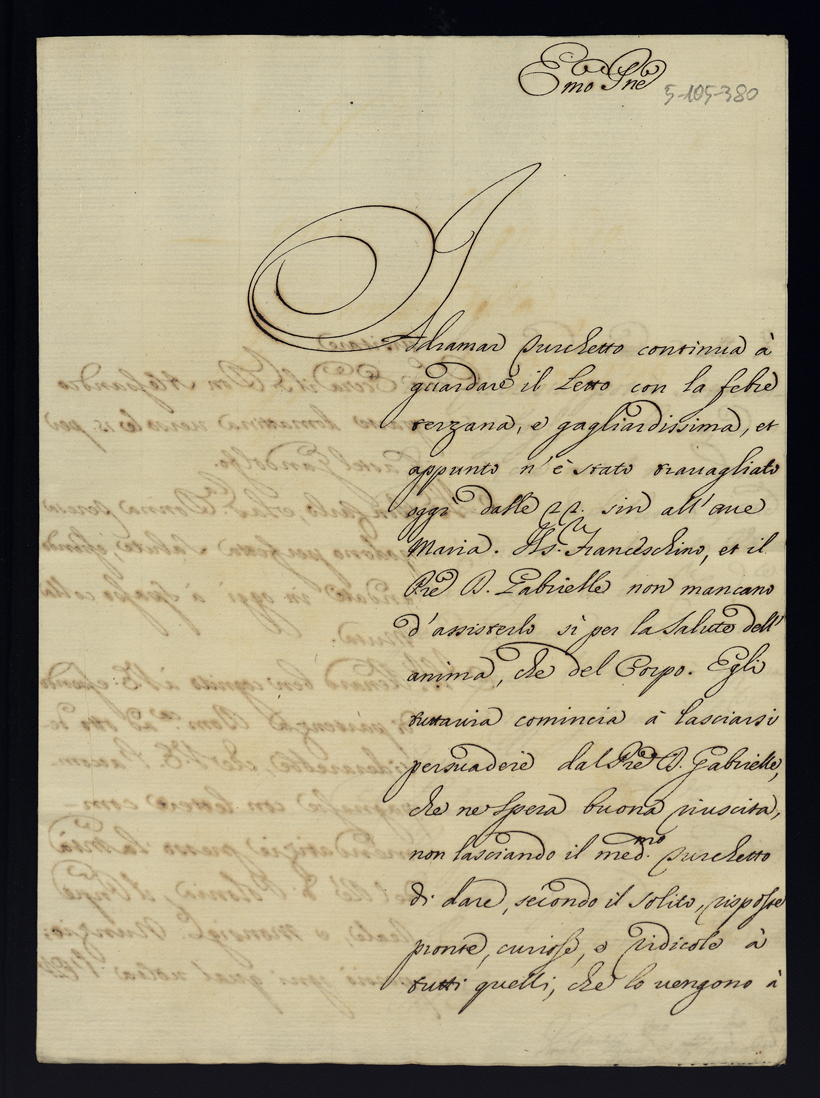 Emo Pne
5-105-380
Adramar Turchetto continua à
guardare il Letto con la febre
terzana, e gagliardissima, et
appunto n'è stato travagliato
oggi dalle 22. sin all'ave
Maria. Franceschino, et il
Pre D. Gabrielle non mancano
d'assisterlo sì per la Salute dell'
anima, che del Corpo. Egli
tuttavia comincia à lasciarsi
persuadere dal Pre D. Gabrielle,
che ne spera buona riuscita,
non lasciando il med.mo Turchetto
di dare, secondo il solito, risposte
pronte, curiose, e ridicole à
tutti quelli, che lo vengono à